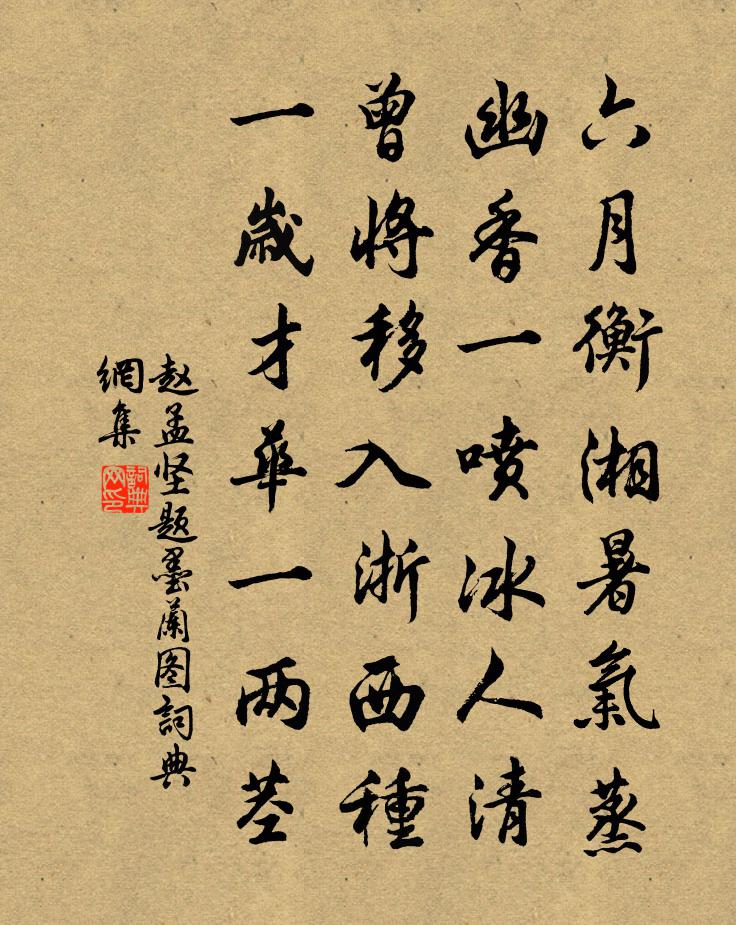 六月衡湘暑氣蒸
幽香一噴冰人清
曾將移入浙西種
一歲才華一两茎
赵孟坚题墨蘭图詞典
網集
詞典
网印